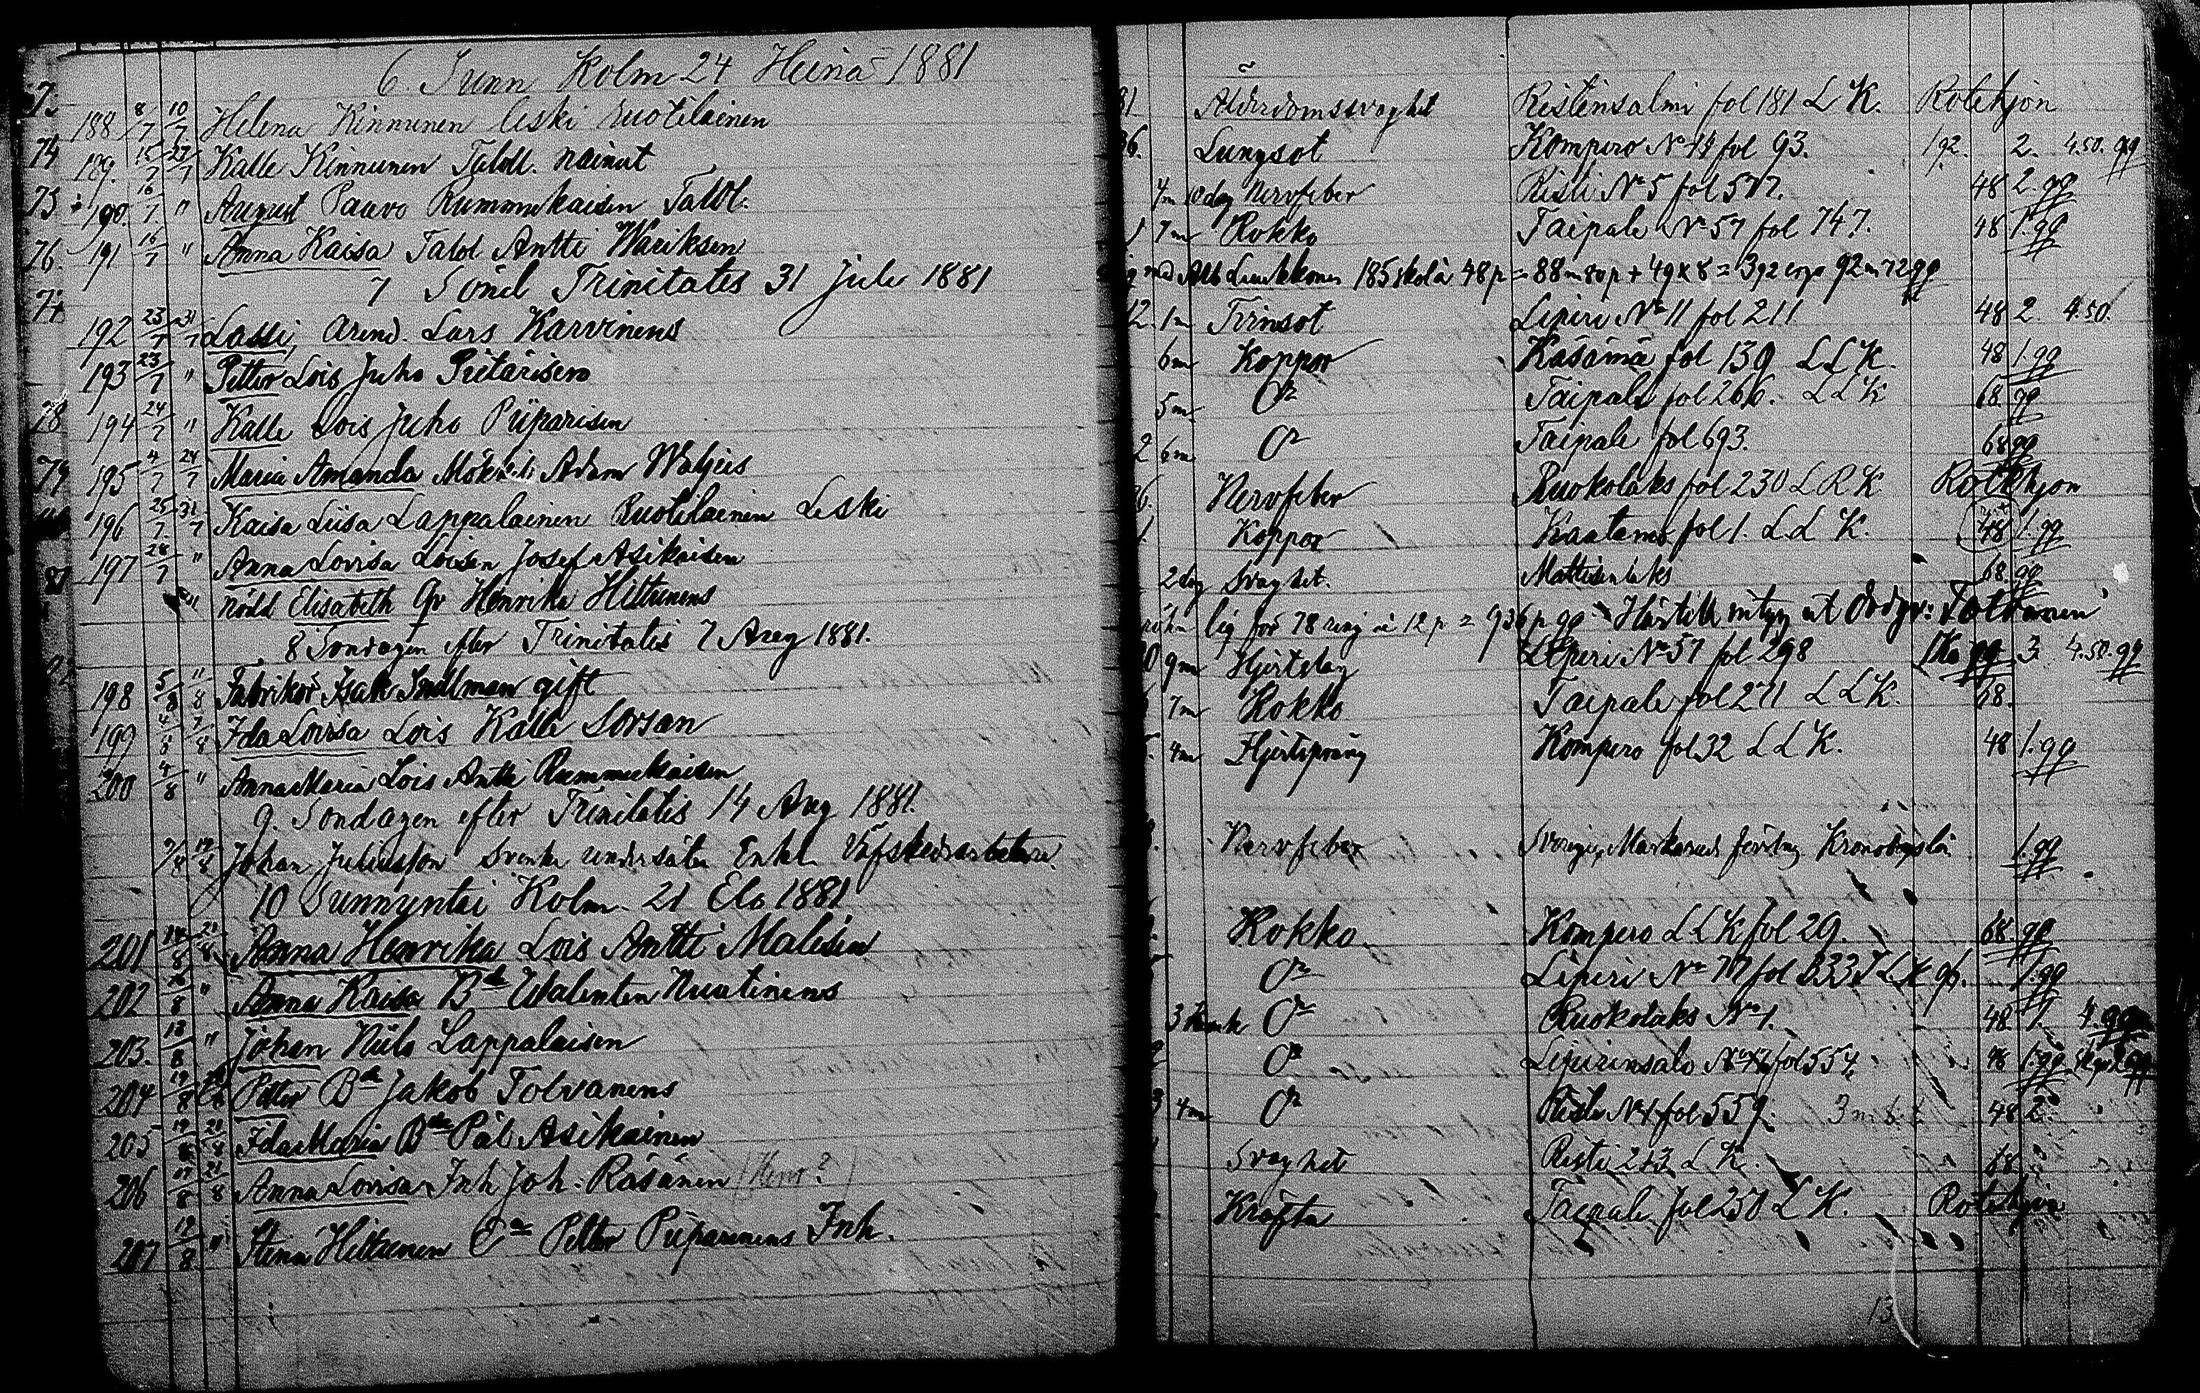 6. Sunn Kolm 24 Heinä 1881
73 188 8/7 10/7 Helena Kinnunen leski Ruotilainen
74 189. 15/7 27/7 Kalle Kinnunen Taloll. nainut
75 190. 16/7 " August Paavo Rummukaisen Talol.
76. 191 16/7 " Anna Kaisa Talol Antti Wäriksen
7 Sönd Trinitatis 31 Juli 1881
77 192 23/7 31/7 Lassi, Arend. Lars Karvinens
193 23/7 " Petter Lois Juho Pietärisen
78 194 24/7 " Kalle Lois Juho Piiparisen
79 195 4/7 24/7 Maria Amanda Mökuli Adam Waljus
196 25/7 31/7 Kaisa Liisa Lappalainen Ruotilainen Leski
81 197 28/7 " Anna Lovisa Loisen Josef Asikaisen
" nödd Elisabeth Qv Henrika Hiltunens
8 Söndagen efter Trinitatis 7 Aug 1881.
198 5/8 11/8 Fabrikör Isak Snellman gift
199 4/8 7/8 Ida Lovisa Lois Kalle Sorsan
200 4/8 " Anna Maria Lois Antti Rummukaisen
9. Söndagen efter Trinitatis 14 Aug 1881.
9/8 14/8 Johan Juliusson Svensk undersåte Enkl. Väfskedsarbetare
10 Sunnyntai Kolm. 21 Elo 1881
201 14/8 21/8 Anna Henrika Lois Antti Malisen
202 16/8 " Anna Kaisa Bde Walenten Nuutinens
203. 18/8 " Johan Niilo Lappalaisen
204 19/8 Petter Bde Jakob Tolvanens
205 19/8 21/8 Ida Maria Bde Pål Asikainen
206 17/8 21/8 Anna Lovisa Inh Joh. Räsänen (Henr?)
207 19/8 " Stina Hiltunen Petter Piiparinens Inh.
81 Ålderdomssvaghet Ristensalmi fol 181 L K. Rotehjon
36. Lungsot Kompero No 14 fol 93. 192. 2. 4.50. gg
4m 10 dag Nervfeber Risti No 5 fol 577. 48 2. gg
1 7m Rokko Taipale No 57 fol 747. 48 1. gg
185 skolä 48p = 88m 80p + 49 x 8 = 392 ergo 92m 72 gg
12. 1m Tvinsot Liperi No 11 fol 211 48 2. 4.50.
6m Koppor Käsämä fol 139 L L K. 48 1. gg
5m Do Taipale fol 266. L L K 68. gg
2 6m Do Taipale fol 693. 68 gg
36. Nervfeber Ruokolaks fol 230 L R K Rotehjon
1. Koppor Kaatamo fol 1. L L K. 48 1. gg
2 dag Svaghet. Mattisenlaks 68. gg
lig för 78 ring à 12 p = 936 p gg Tolvanen
9m Hjertslag Liperi No 57 fol 298 gg 3. 4.50. gg
7m Rokko Taipale fol 271 L L K. 68.
5. 4m Hjertsprång Kompero fol 32 L L K. 48 1. gg
Nervfeber Sverige, Markaryds försling Kronobergslän 1. gg
Rokko. Kompero L L K fol 29. 68 gg
Do Liperi No 77 fol 333 L K 1. gg
3 Do Ruokolaks No 1. 48. 1. 4. gg
2 Do Liperinsalo fol 554. 48 1. gg
3 4m Do Risti No 1 fol 559. 48 2.
Svaghet Risti 243 L K. 68
Kräfta Taipale fol 250 L K. Rotehjon
13